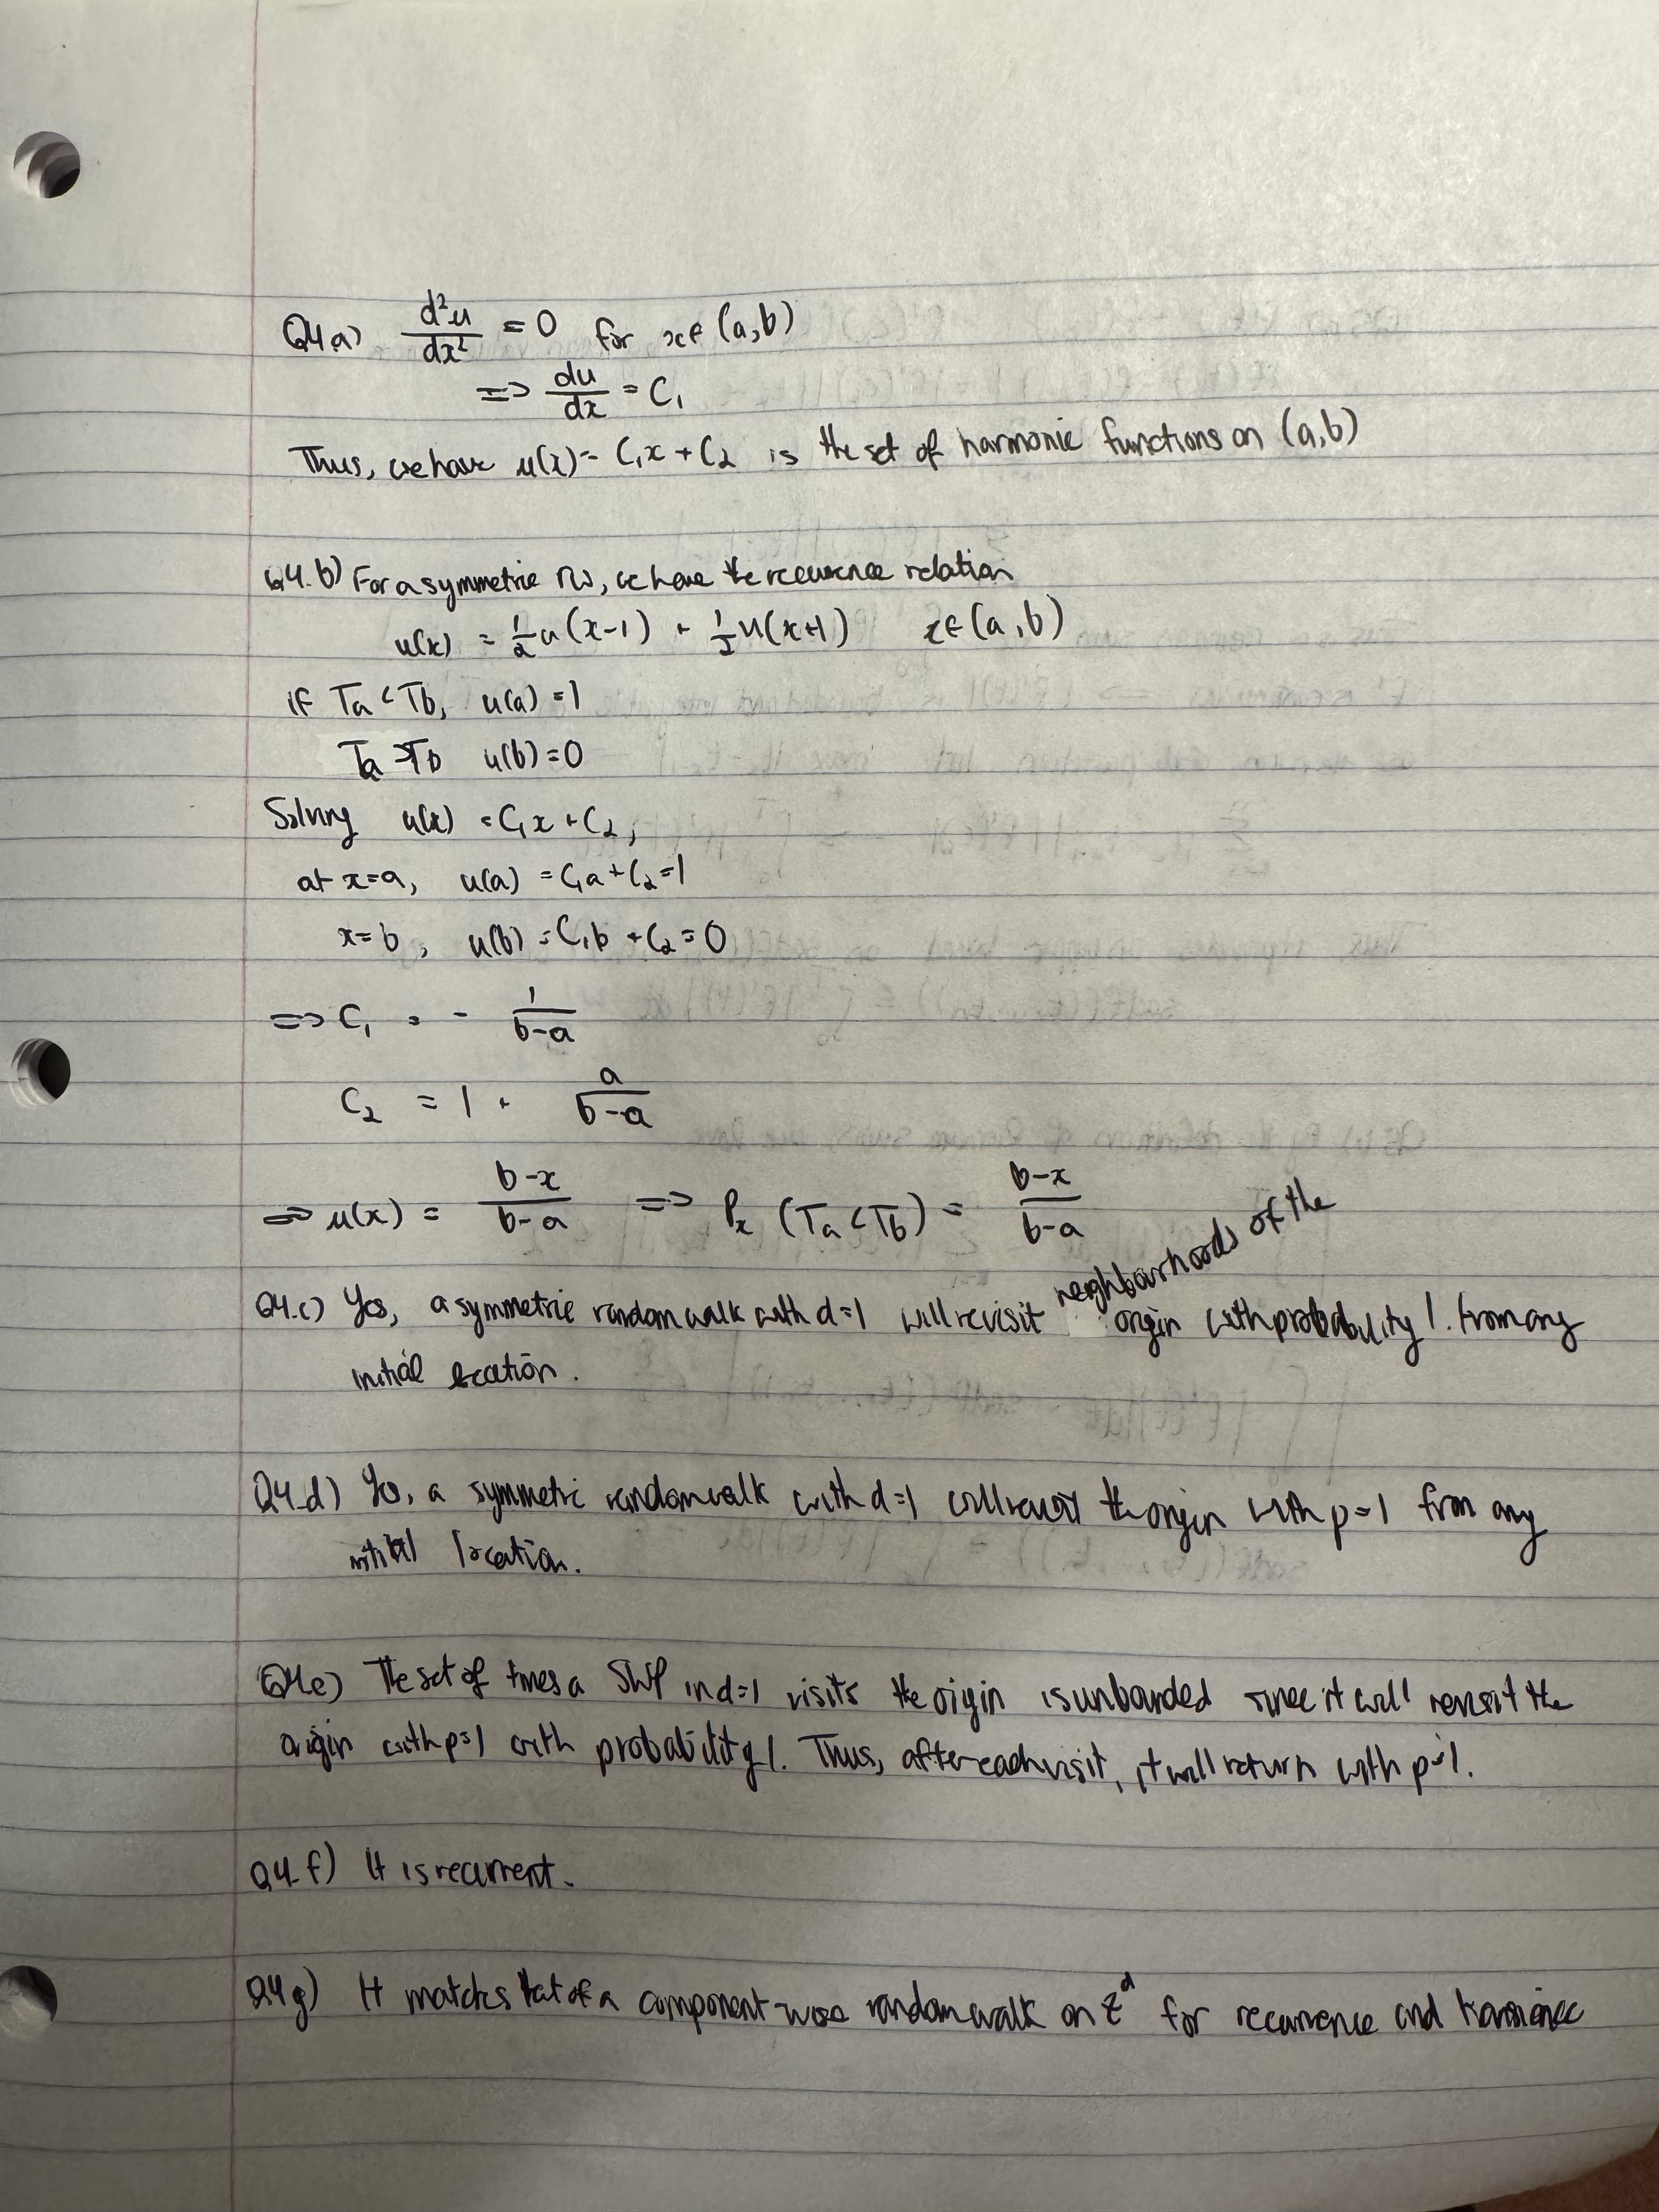 Q4.a) d²u/dx² = 0 for x∈(a,b)
=> du/dx = C₁
Thus, we have u(x) = C₁x + C₂ is the set of harmonic functions on (a,b)
Q4.b) For a symmetric rw, we have the recurrence relation
u(x) = ½u(x-1) + ½u(x+1) x∈(a,b)
if Ta < Tb, u(a) = 1
Ta > Tb u(b) = 0
Solving u(x) = C₁x + C₂,
at x=a, u(a) = C₁a + C₂ = 1
x=b, u(b) = C₁b + C₂ = 0
=> C₁ = - 1/(b-a)
C₂ = 1 + a/(b-a)
=> u(x) = (b-x)/(b-a) => Pₓ(Ta < Tb) = (b-x)/(b-a)
Q4.c) Yes, a symmetric random walk with d=1 will revisit neighbourhoods of the origin with probability 1. from any
initial location.
Q4.d) Yes, a symmetric random walk with d=1 will revisit the origin with p=1 from any
initial location.
Q4.e) The set of times a in d=1 visits the origin is unbounded since it will revisit the
origin with p=1 with probability 1. Thus, after each visit, it will return with p=1.
Q4.f) It is recurrent.
Q4.g) It matches that of a component-wise random walk on Zᵈ for recurrence and transience